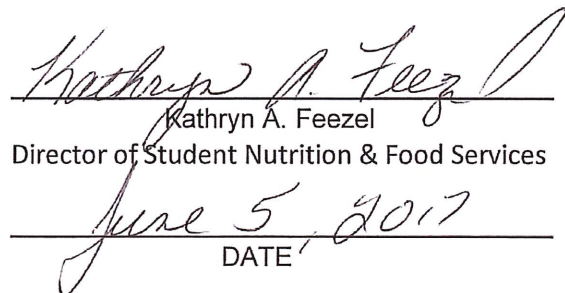 Kathryn A. Feezel
Kathryn A. Feezel
Director of Student Nutrition & Food Services
June 5, 2017
DATE